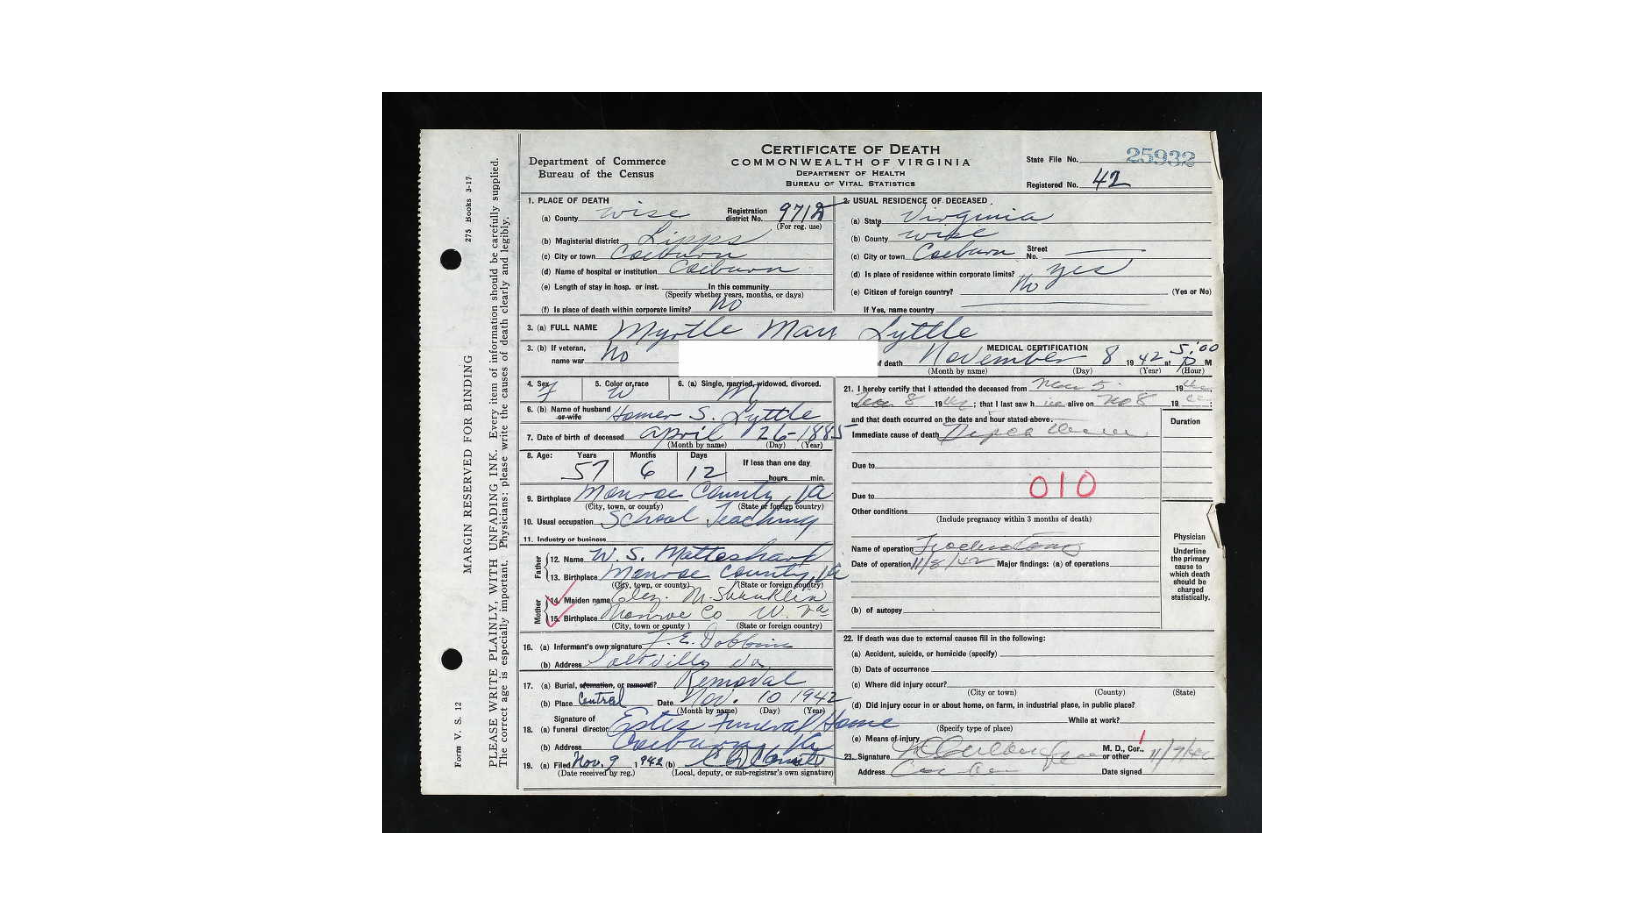 CERTIFICATE OF DEATH
COMMONWEALTH OF VIRGINIA
DEPARTMENT OF HEALTH
BUREAU OF VITAL STATISTICS
Department of Commerce
Bureau of the Census
State File No. 25932
Registered No. 42
1. PLACE OF DEATH
(a) County Wise Registration district No. 9712
(For reg. use)
(b) Magisterial district Lipps
(c) City or town Coeburn
(d) Name of hospital or institution Coeburn
(e) Length of stay in hosp. or inst. In this community
(Specify whether years, months, or days)
(f) Is place of death within corporate limits? No
2. USUAL RESIDENCE OF DECEASED
(a) State Virginia
(b) County Wise
(c) City or town Coeburn Street No.
(d) Is place of residence within corporate limits? yes
(e) Citizen of foreign country? No (Yes or No)
If Yes, name country
3. (a) FULL NAME Myrtle Mary Lyttle
3. (b) If veteran, name war No
4. Sex F 5. Color or race W 6. (a) Single, married, widowed, divorced. M
6. (b) Name of husband or wife Homer S. Lyttle
7. Date of birth of deceased April 26-1885
(Month by name) (Day) (Year)
8. Age: Years Months Days If less than one day
57 6 12 hours min.
9. Birthplace Monroe County, Va
(City, town, or county) (State or foreign country)
10. Usual occupation School Teaching
11. Industry or business
Father
12. Name W. S.
13. Birthplace Monroe County, Va
(City, town, or county) (State or foreign country)
Mother
14. Maiden name Eliz. M. Shanklin
15. Birthplace Monroe Co W. Va
(City, town or county) (State or foreign country)
16. (a) Informant's own signature J. E. Dobbins
(b) Address Saltville Va
17. (a) Burial, cremation, or removal? Removal
(b) Place Central Date Nov. 10 1942
(Month by name) (Day) (Year)
18. Signature of (a) funeral director Estes Funeral Home
(b) Address Coeburn, Va
19. (a) Filed Nov. 9 1942 (b)
(Date received by reg.) (Local, deputy, or sub-registrar's own signature)
MEDICAL CERTIFICATION
of death November 8 1942 at 5:00 P M
(Month by name) (Day) (Year) (Hour)
21. I hereby certify that I attended the deceased from Nov 5 19
to 8 19 ; that I last saw h alive on 8 19
and that death occurred on the date and hour stated above.
Duration
Immediate cause of death
Due to
Due to 010
Other conditions
(Include pregnancy within 3 months of death)
Name of operation
Date of operation 11/8/42 Major findings: (a) of operations
(b) of autopsy
Physician
Underline
the primary
cause to
which death
should be
charged
statistically.
22. If death was due to external causes fill in the following:
(a) Accident, suicide, or homicide (specify)
(b) Date of occurrence
(c) Where did injury occur?
(City or town) (County) (State)
(d) Did injury occur in or about home, on farm, in industrial place, in public place?
While at work?
(Specify type of place)
(e) Means of injury
23. Signature M. D., Cor. or other
Address Date signed 11/9/42
MARGIN RESERVED FOR BINDING
PLEASE WRITE PLAINLY, WITH UNFADING INK. Every item of information should be carefully supplied.
The correct age is especially important. Physicians: please write the causes of death clearly and legibly.
Form V. S. 12
275 Books 3-17